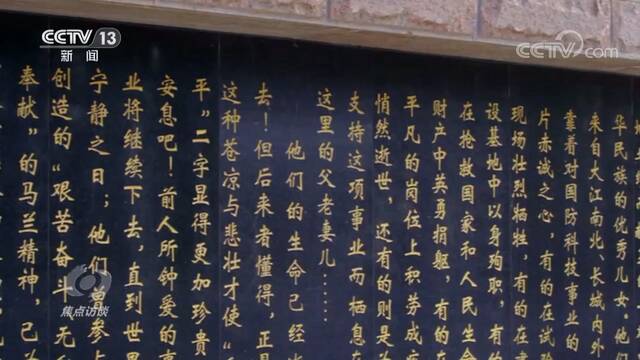 CCTV 13
新闻
CCTV.com
华民族的优秀儿女。他
来自大江南北、长城内外
靠着对国防科技事业的
片赤诚之心，有的在试
现场壮烈牺牲，有的在
设基地中以身殉职，有
在抢救国家和人民生命
财产中英勇捐躯，有的
平凡的岗位上积劳成
悄然逝世，还有的则是
支持这项事业而栖息
这里的父老妻儿……
他们的生命已经
去！但后来者懂得，正
这种苍凉与悲壮才使“
平”二字显得更加珍贵
安息吧！前人所钟爱的
业将继续下去，直到世
宁静之日；他们曾参
创造的“艰苦奋斗无
奉献”的马兰精神，已
焦点访谈